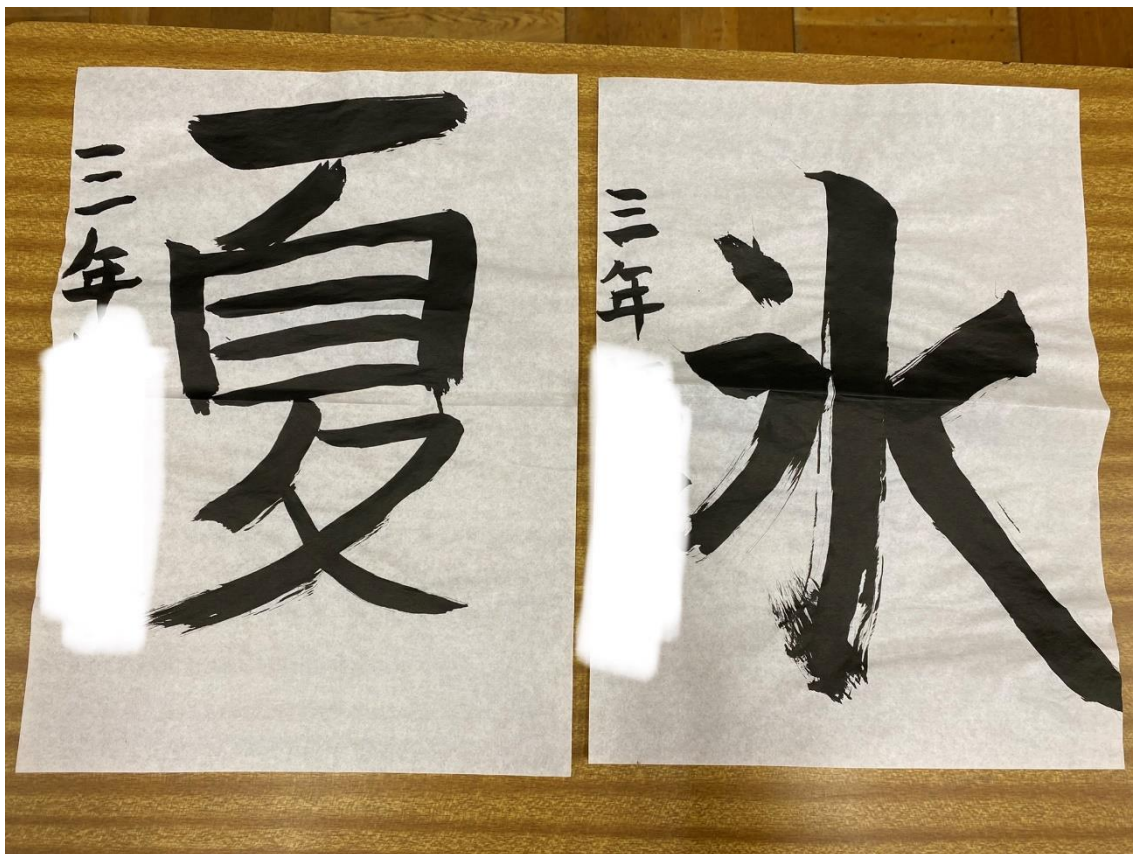 夏
三年
氷
三年